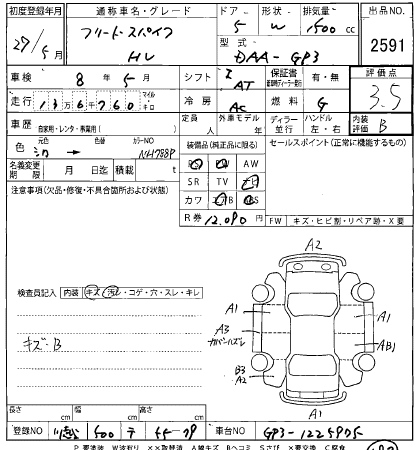 初度登録年月 通称車名・グレード ドア 形状 排気量 出品NO.
27/5月 フリードスパイク HV 5 W 1500cc 2591
型式 DAA-GP3
車検 8年5月 シフト AT 保証書 有・無 評価点
走行 136760 マイル キロ 冷房 AC 燃料 G 3.5
車歴 自家用・レンタ・事業用( ) 定員 人 外車モデル 年 ディーラー 並行 ハンドル 左・右 内装評価 B
色 元色 色替 カラーNO NH788P 装備品(純正品に限る) セールスポイント(正常に機能するもの)
名義変更期限 月 日迄 積載 t AW
注意事項(欠品・修復・不具合箇所および状態) SR TV
カワ AB
R券 12,090 FW キズ・ヒビ割・リペア跡・X要
A2
検査員記入 内装 キズ・汚レ・コゲ・穴・スレ・キレ
A1 A1
キズ・B A3 AB1
B3
A2
A1
長さ cm 幅 cm 高さ cm
登録NO 500 テ 車台NO GP3-1225905
P要塗装 W波有り ××取替済 A線キズ Bヘコミ Sさび ×要交換 C腐食